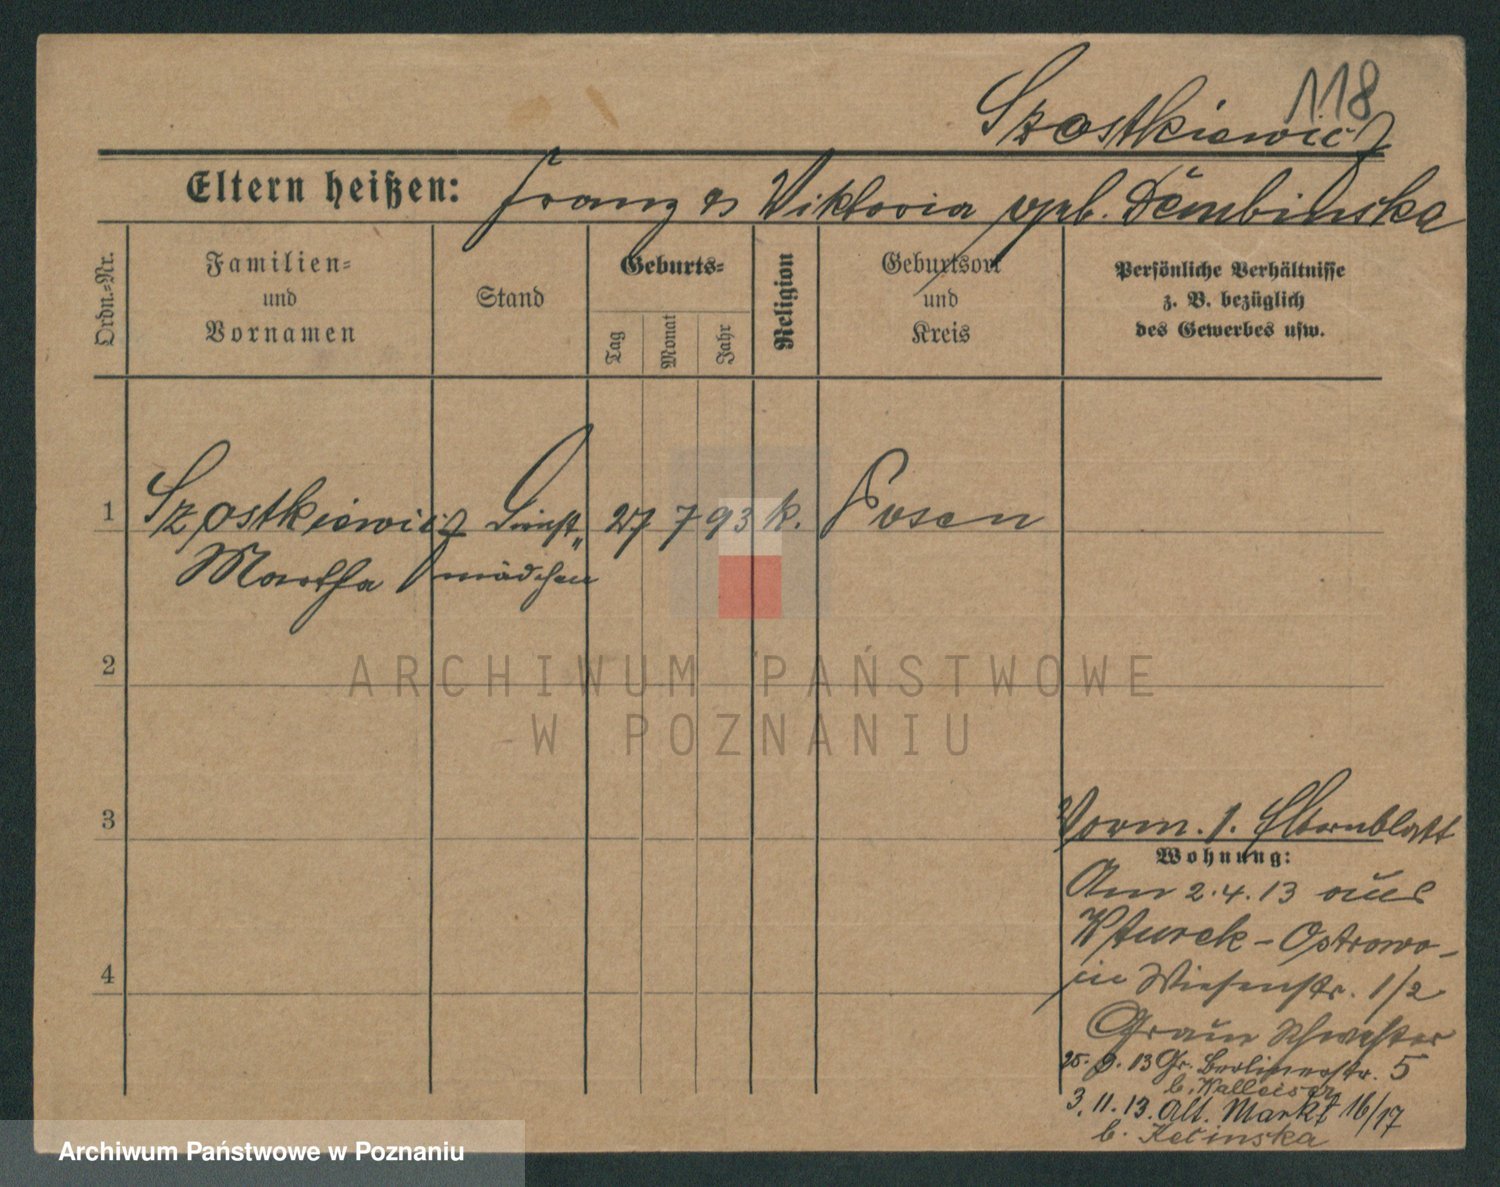 118
Szostkiewicz
Eltern heißen: Franz & Viktoria geb. Dembinska
Ordn.-Nr.
Familien-
und
Vornamen
Stand
Geburts-
Tag
Monat
Jahr
Religion
Geburtsort
und
Kreis
Persönliche Verhältnisse
z. B. bezüglich
des Gewerbes usw.
1 Szostkiewicz Dienst„ 27 7 93 k. Posen
Martha mädchen
2
ARCHIWUM PAŃSTWOWE
W POZNANIU
3
Vorm. 1. Elternblatt
Wohnung:
Am 2.4.13 aus
Kturek-Ostrowo-
in Wiesenstr. 1/2
Schwester
25. 9. 13 Gr. Berlinerstr. 5
b.
4
3. 11. 13. Alt. Markt 16/17
b.
Archiwum Państwowe w Poznaniu